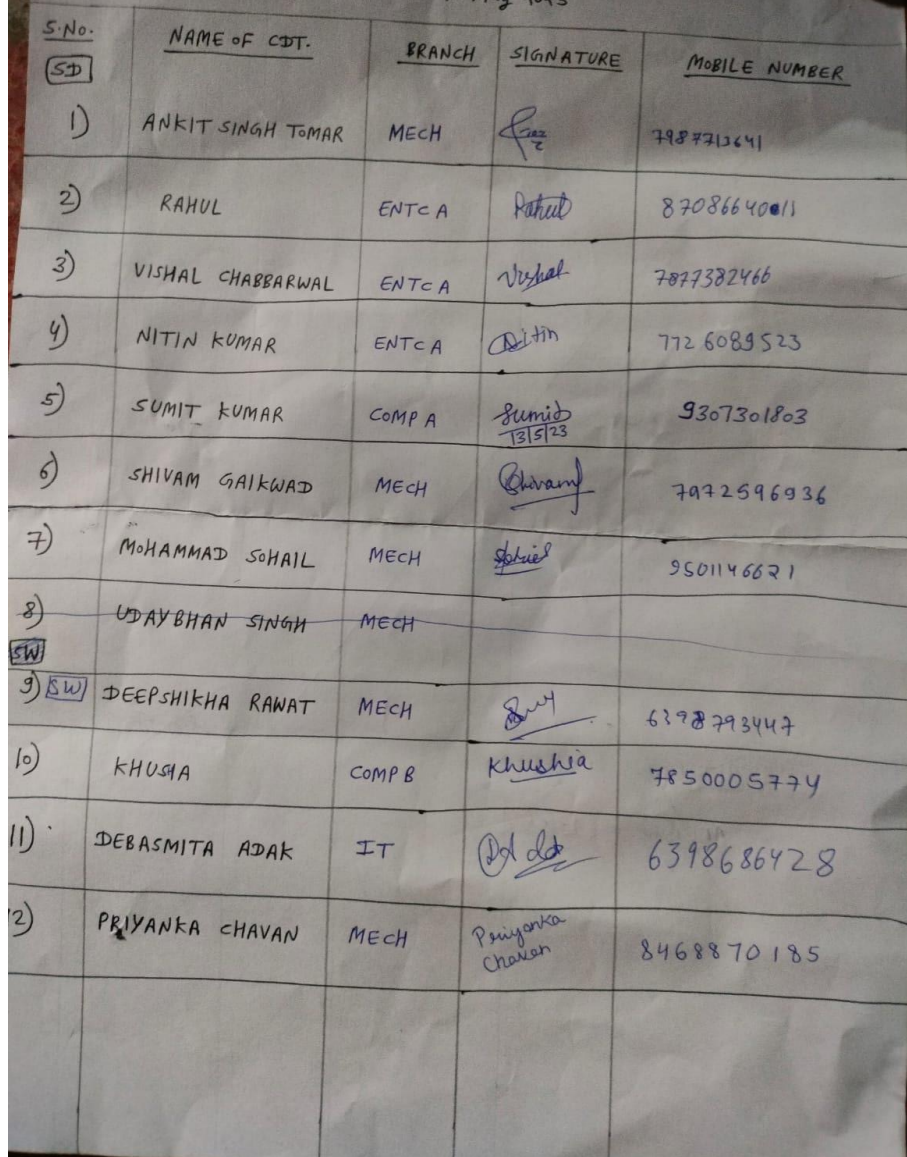 S.No. NAME OF CDT. BRANCH SIGNATURE MOBILE NUMBER
SD
1) ANKIT SINGH TOMAR MECH 7987713641
2) RAHUL ENTC A Rahul 8708664011
3) VISHAL CHABBARWAL ENTC A Vishal 7877382466
4) NITIN KUMAR ENTC A Nitin 7726089523
5) SUMIT KUMAR COMP A Sumit 9307301803
13|5|23
6) SHIVAM GAIKWAD MECH Shivam 7972596936
7) MOHAMMAD SOHAIL MECH Sohail 9501146621
8) UDAYBHAN SINGH MECH
SW
9) SW DEEPSHIKHA RAWAT MECH 6398793447
10) KHUSHIA COMP B Khushia 7850005774
11) DEBASMITA ADAK IT 6398686428
2) PRIYANKA CHAVAN MECH Priyanka 8468870185
Chavan